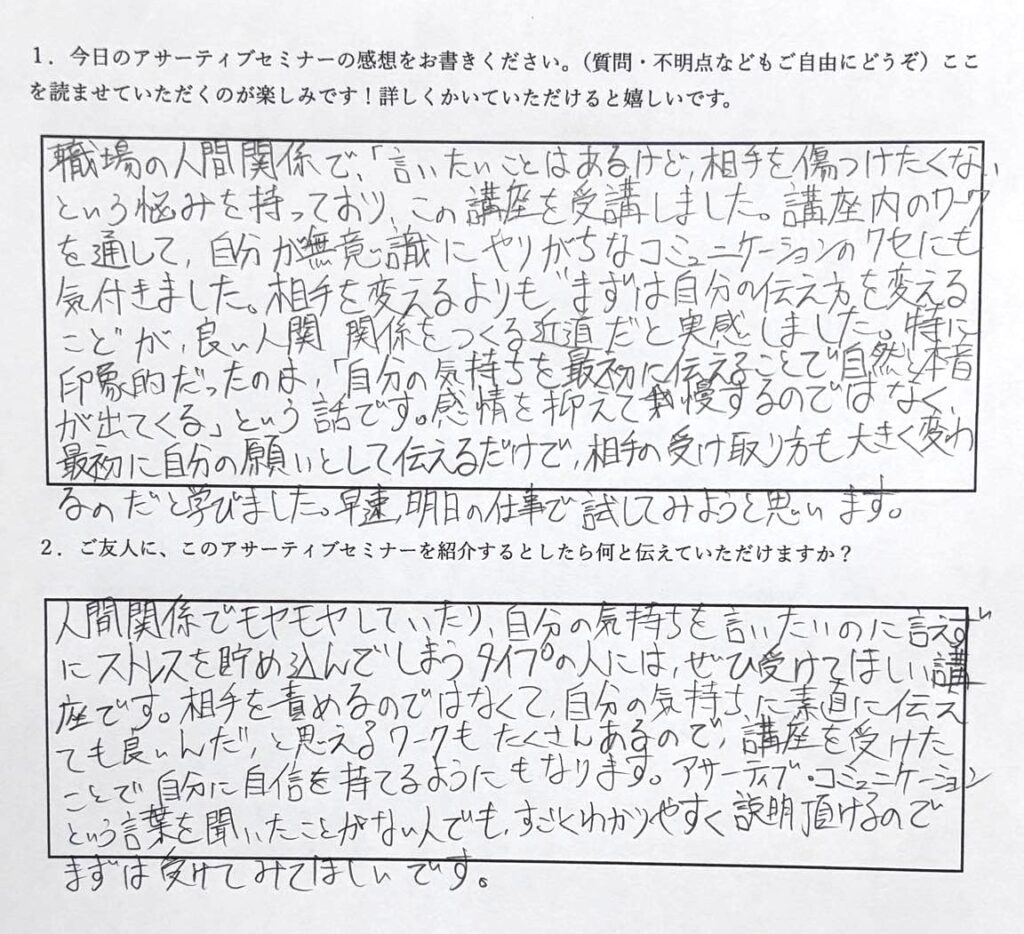 1．今日のアサーティブセミナーの感想をお書きください。（質問・不明点などもご自由にどうぞ）ここ
を読ませていただくのが楽しみです！詳しくかいていただけると嬉しいです。
職場の人間関係で、「言いたいことはあるけど、相手を傷つけたくない
という悩みを持っており、この講座を受講しました。講座内のワーク
を通して、自分が無意識にやりがちなコミュニケーションのクセにも
気付きました。相手を変えるよりも"まずは自分の伝え方を変える
こと"が、良い人間関係をつくる近道だと実感しました。特に
印象的だったのは、「自分の気持ちを最初に伝えることで自然と本音
が出てくる」という話です。感情を抑えて我慢するのではなく、
最初に自分の願いとして伝えるだけで、相手の受け取り方も大きく変わ
るのだと学びました。早速、明日の仕事で試してみようと思います。
2．ご友人に、このアサーティブセミナーを紹介するとしたら何と伝えていただけますか？
人間関係でモヤモヤしていたり、自分の気持ちを言いたいのに言えず
にストレスを貯め込んでしまうタイプの人には、ぜひ受けてほしい講
座です。相手を責めるのではなくて、自分の気持ちに素直に伝え
ても良いんだ、と思えるワークもたくさんあるので、講座を受けた
ことで自分に自信を持てるようにもなります。アサーティブ・コミュニケーション
という言葉を聞いたことがない人でも、すごくわかりやすく説明頂けるので
まずは受けてみてほしいです。